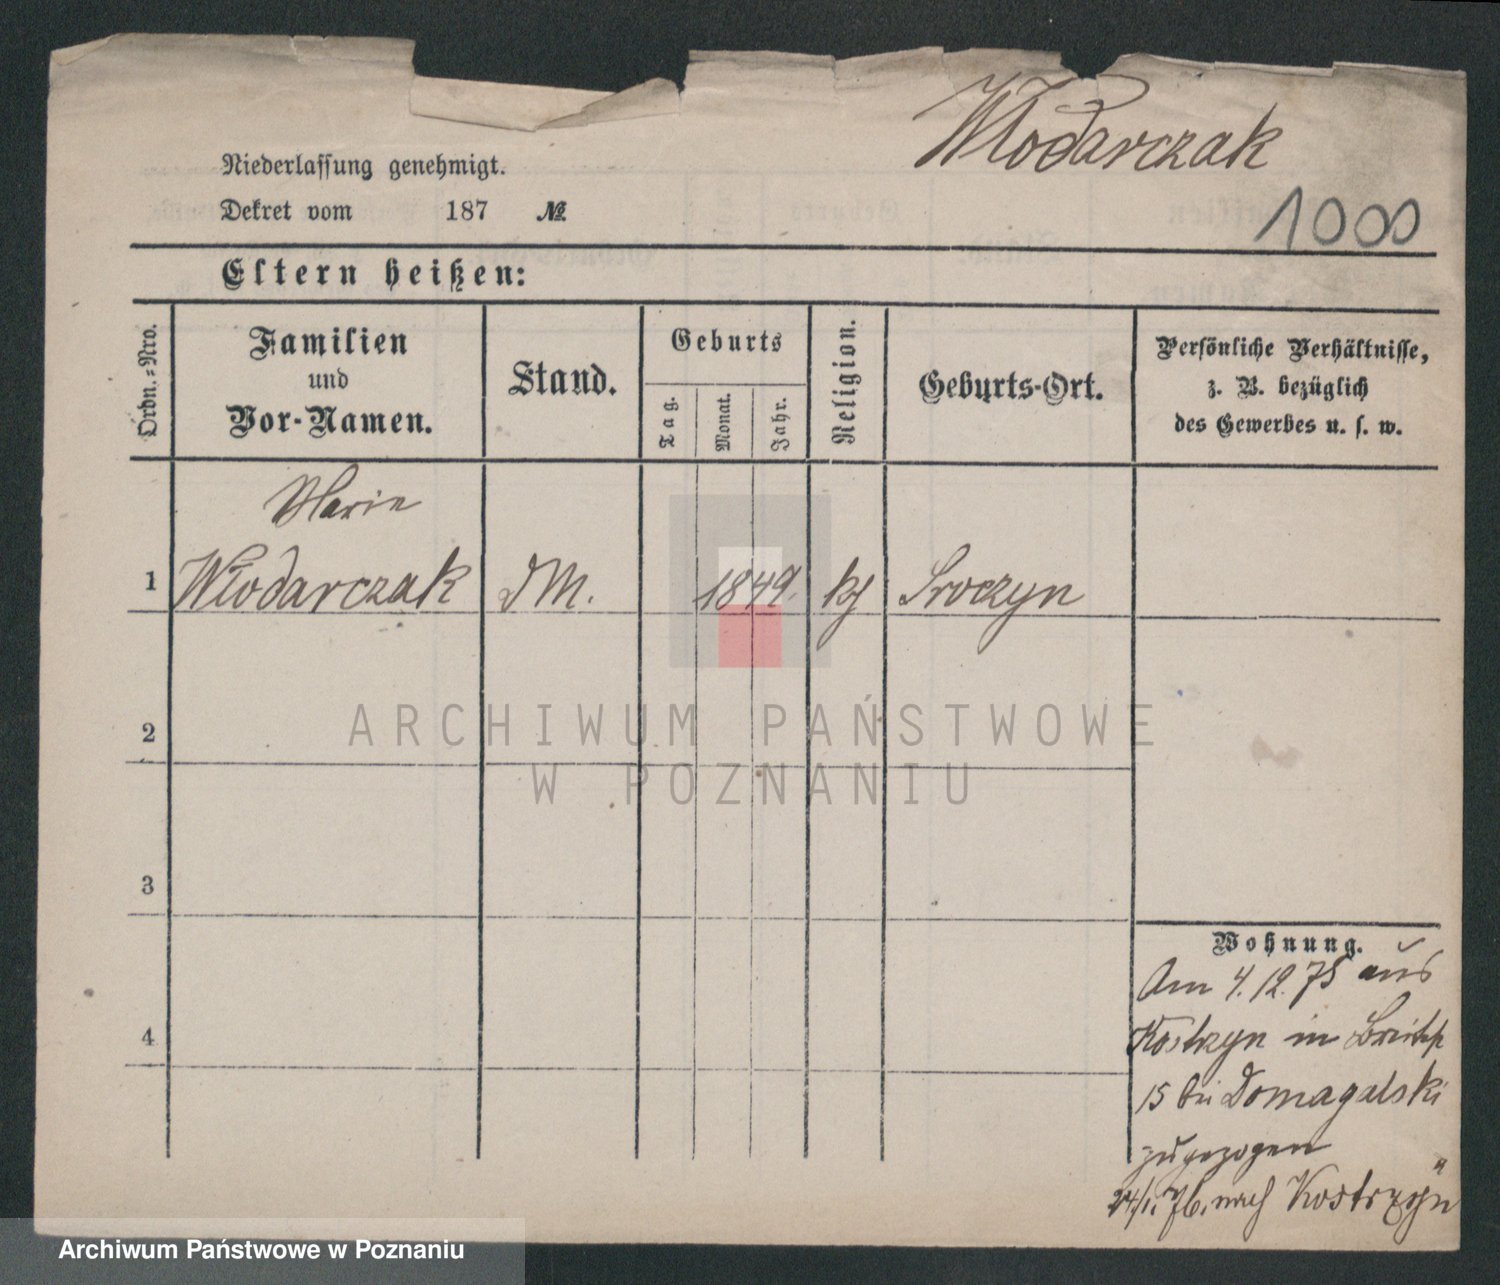 Włodarczak
Niederlassung genehmigt.
Dekret vom 187 №
1000
Eltern heißen:
Ordn.-Nro.
Familien
und
Vor-Namen.
Stand.
Geburts
Tag.
Monat.
Jahr.
Religion.
Geburts-Ort.
Persönliche Verhältnisse,
z. B. bezüglich
des Gewerbes u. s. w.
Marie
1 Włodarczak DM. 1849. kf Sroczyn
2
ARCHIWUM PAŃSTWOWE
W POZNANIU
3
Wohnung.
Am 4.12.75 aus
Kostrzyn in Breitstr
15 bei Domagalski
zugezogen
24/1.76. nach Kostrzyn
4
Archiwum Państwowe w Poznaniu